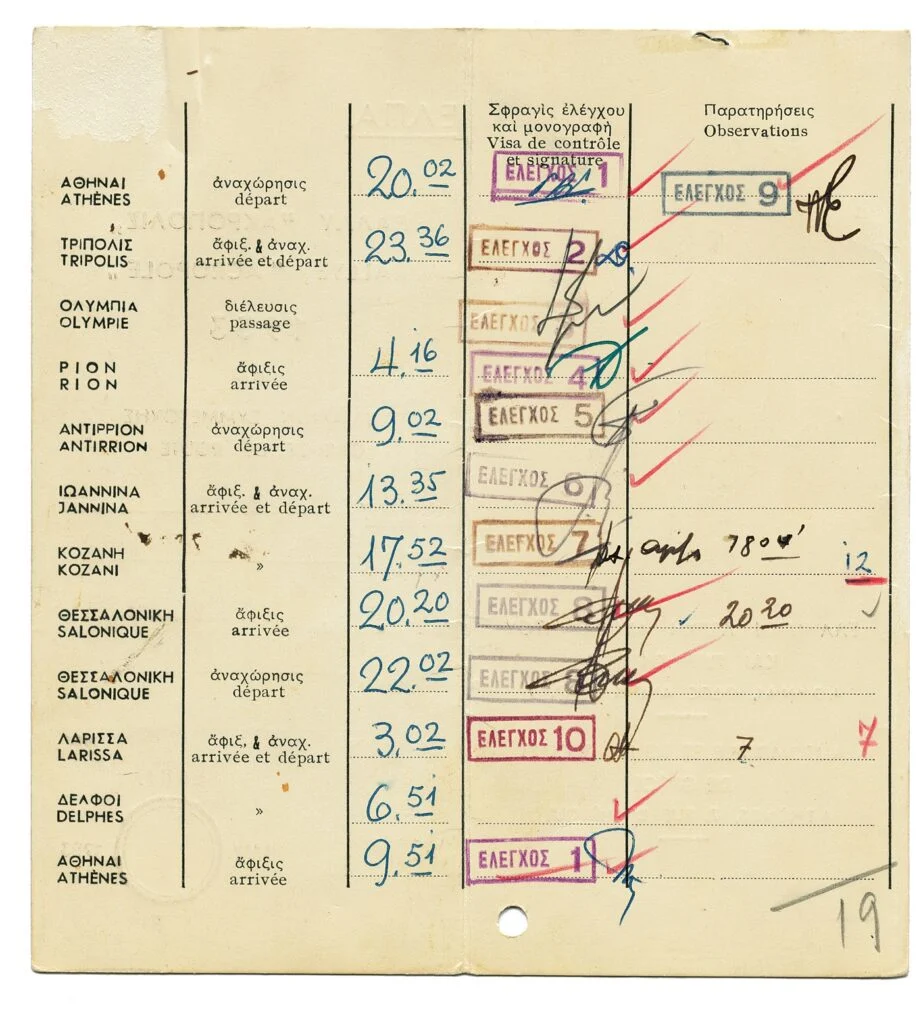 Σφραγὶς ἐλέγχου
καὶ μονογραφὴ
Visa de contrôle
et signature
Παρατηρήσεις
Observations
ΑΘΗΝΑΙ
ATHÈNES
ἀναχώρησις
départ
20.02
ΕΛΕΓΧΟΣ 1
ΕΛΕΓΧΟΣ 9
ΤΡΙΠΟΛΙΣ
TRIPOLIS
ἄφιξ. & ἀναχ.
arrivée et départ
23.36
ΕΛΕΓΧΟΣ 2
ΟΛΥΜΠΙΑ
OLYMPIE
διέλευσις
passage
ΕΛΕΓΧΟΣ
ΡΙΟΝ
RION
ἄφιξις
arrivée
4.16
ΕΛΕΓΧΟΣ 4
ΑΝΤΙΡΡΙΟΝ
ANTIRRION
ἀναχώρησις
départ
9.02
ΕΛΕΓΧΟΣ 5
ΙΩΑΝΝΙΝΑ
JANNINA
ἄφιξ. & ἀναχ.
arrivée et départ
13.35
ΕΛΕΓΧΟΣ 6
ΚΟΖΑΝΗ
KOZANI
»
17.52
ΕΛΕΓΧΟΣ 7
12
ΘΕΣΣΑΛΟΝΙΚΗ
SALONIQUE
ἄφιξις
arrivée
20.20
ΕΛΕΓΧΟΣ 8
20 20
ΘΕΣΣΑΛΟΝΙΚΗ
SALONIQUE
ἀναχώρησις
départ
22.02
ΕΛΕΓΧΟΣ 8
ΛΑΡΙΣΣΑ
LARISSA
ἄφιξ. & ἀναχ.
arrivée et départ
3.02
ΕΛΕΓΧΟΣ 10
7
7
ΔΕΛΦΟΙ
DELPHES
»
6.51
ΑΘΗΝΑΙ
ATHÈNES
ἄφιξις
arrivée
9.51
ΕΛΕΓΧΟΣ 1
19